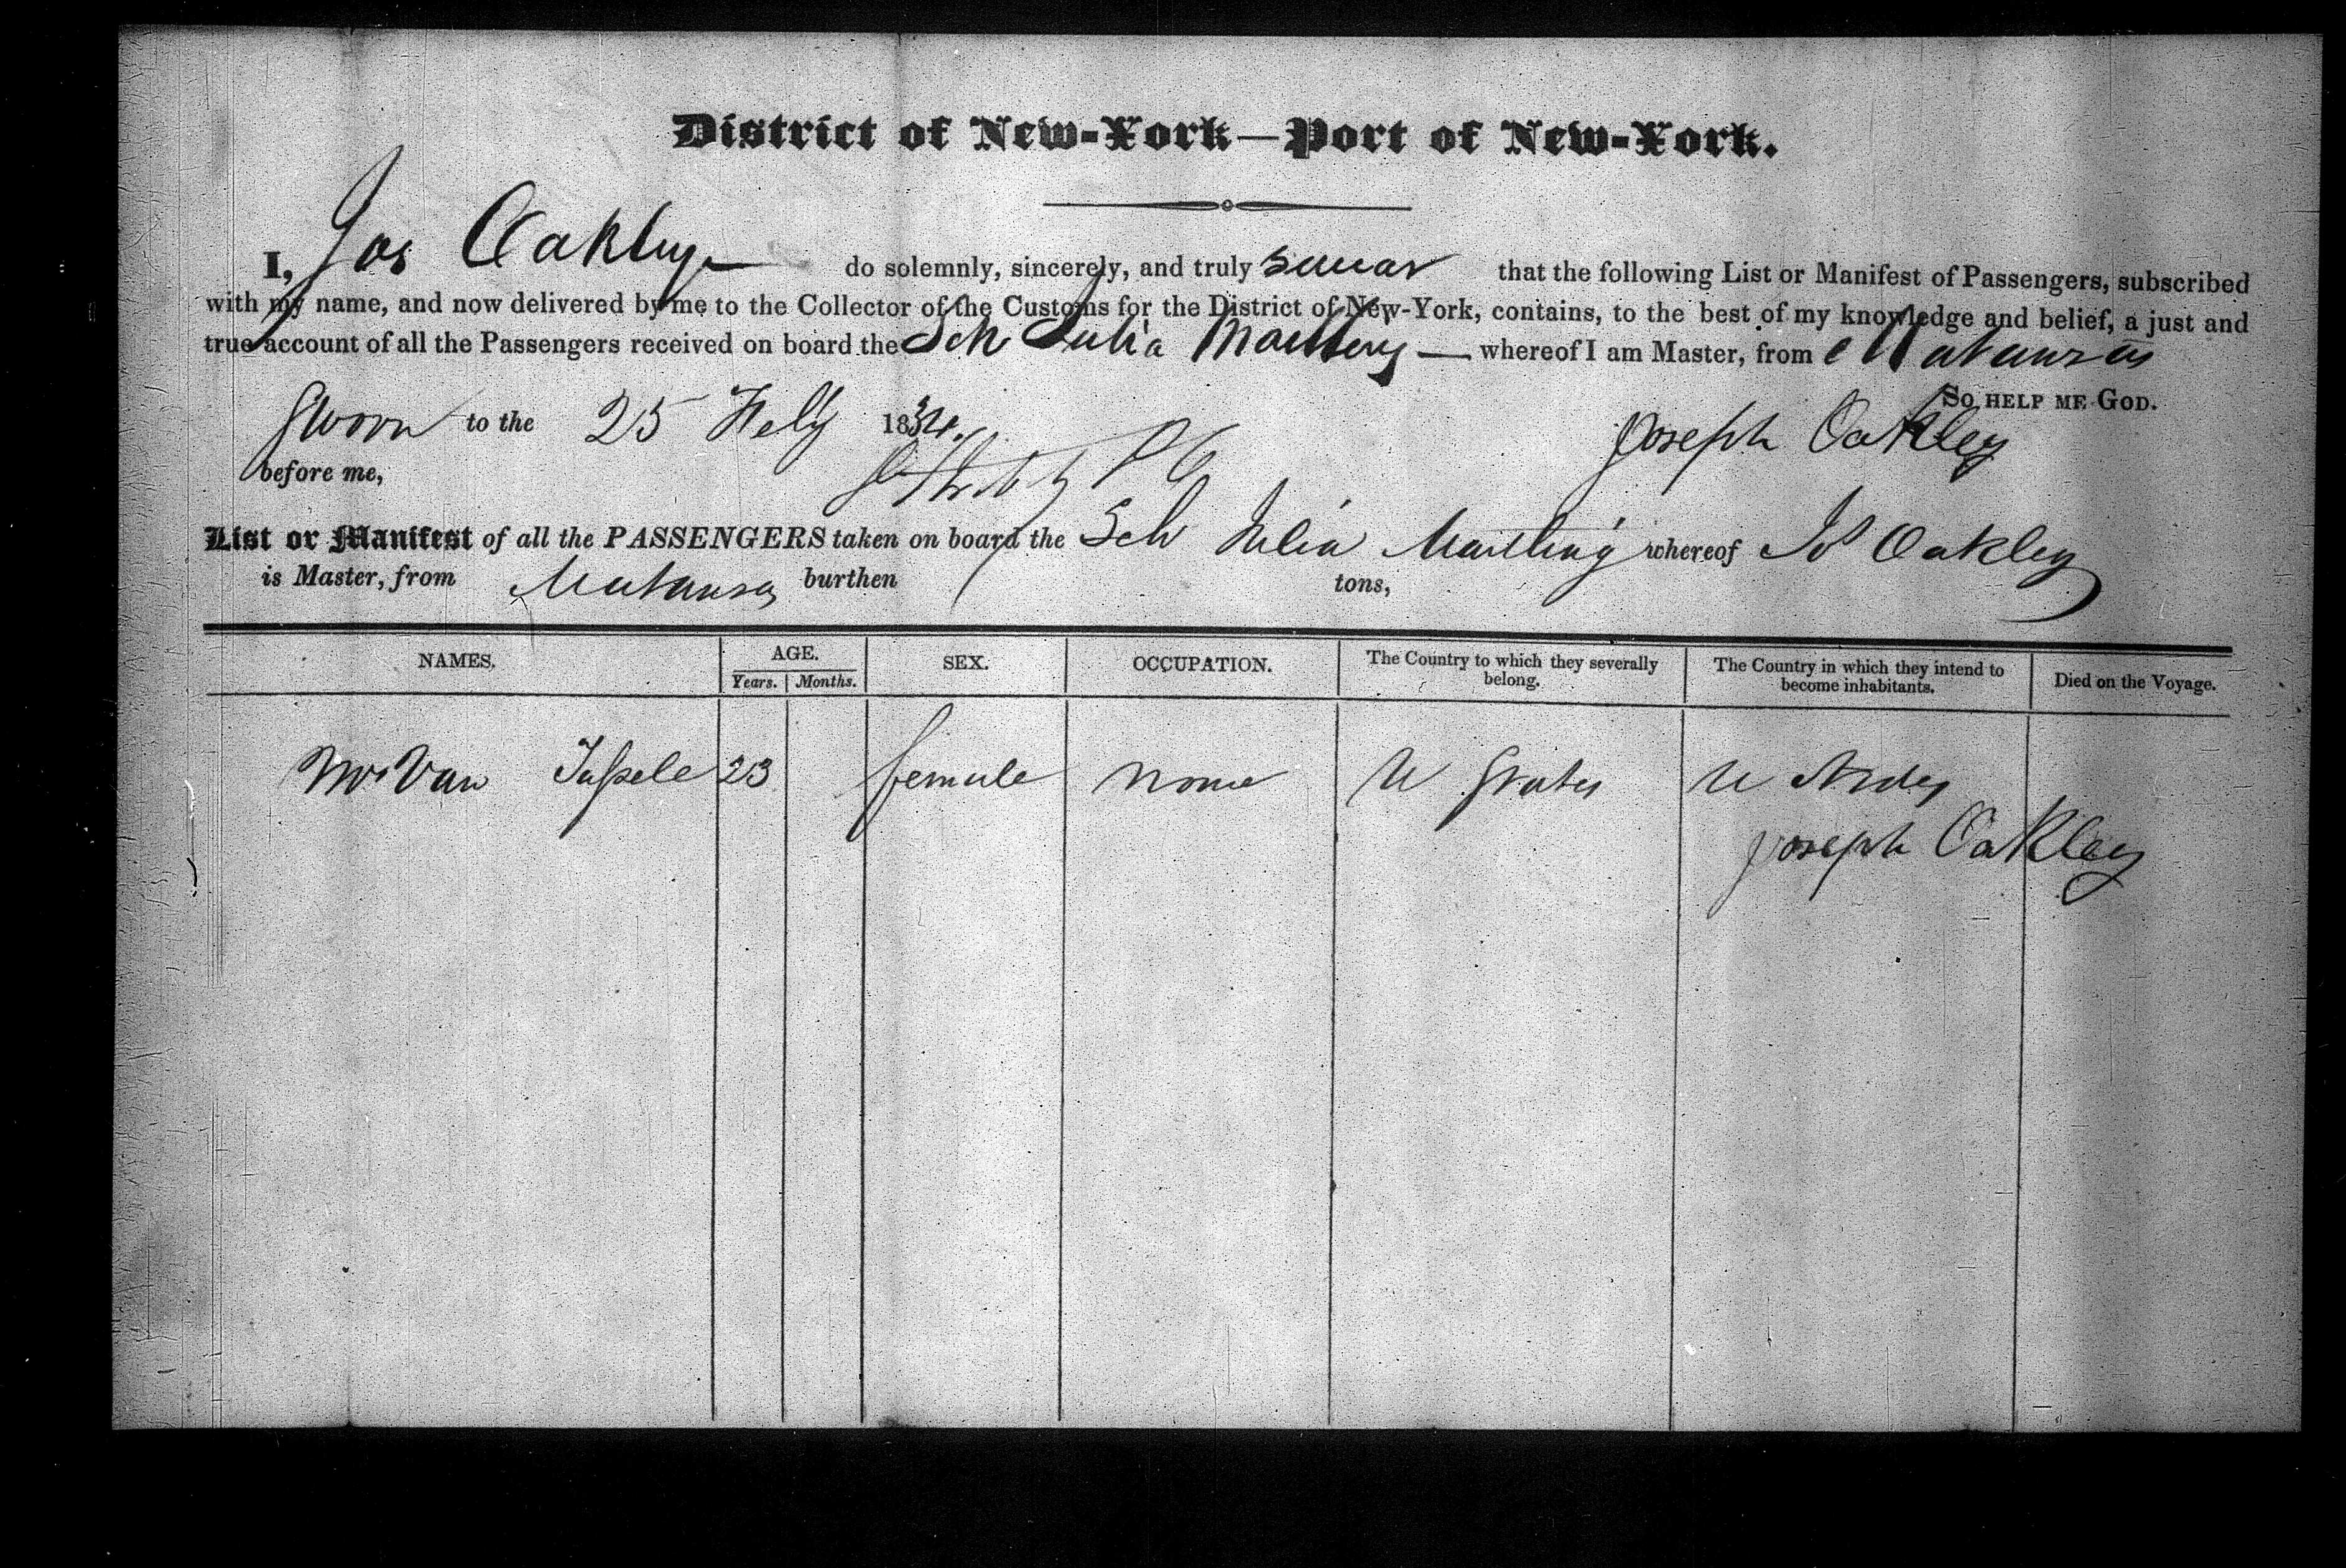 District of New-York—Port of New-York.
I, Jos Oakley do solemnly, sincerely, and truly swear that the following List or Manifest of Passengers, subscribed
with my name, and now delivered by me to the Collector of the Customs for the District of New-York, contains, to the best of my knowledge and belief, a just and
true account of all the Passengers received on board the Sch Julia Martling — whereof I am Master, from Matanzas
So help me God.
Sworn to the 25 Feby 1834.
Joseph Oakley
before me,
List or Manifest of all the PASSENGERS taken on board the Sch Julia Martling whereof Js Oakley
is Master, from Matanzas burthen tons,
NAMES. AGE. SEX. OCCUPATION. The Country to which they severally belong. The Country in which they intend to become inhabitants. Died on the Voyage.
Years. Months.
Van 23 female none U States U States
Joseph Oakley